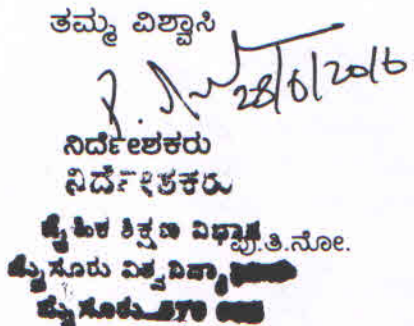 ತಮ್ಮ ವಿಶ್ವಾಸಿ
28/6/2016
ನಿರ್ದೇಶಕರು
ನಿರ್ದೇಶಕರು
ದೈಹಿಕ ಶಿಕ್ಷಣ ವಿಭಾಗ
ಪು.ತಿ.ನೋ.
ಮೈಸೂರು ವಿಶ್ವವಿದ್ಯಾ
ಮೈಸೂರು 570